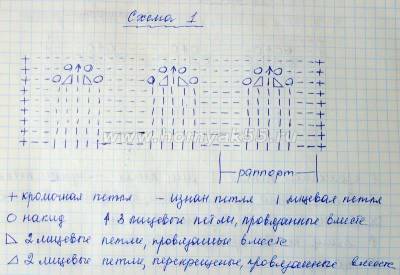 Схема 1
раппорт
+ кромочная петля — изнан петля | лицевая петля
О накид ↑ 3 лицевые петли, провязанные вместе
◺ 2 лицевые петли, провязанные вместе
◿ 2 лицевые петли, перекрещеные, провязанные вместе